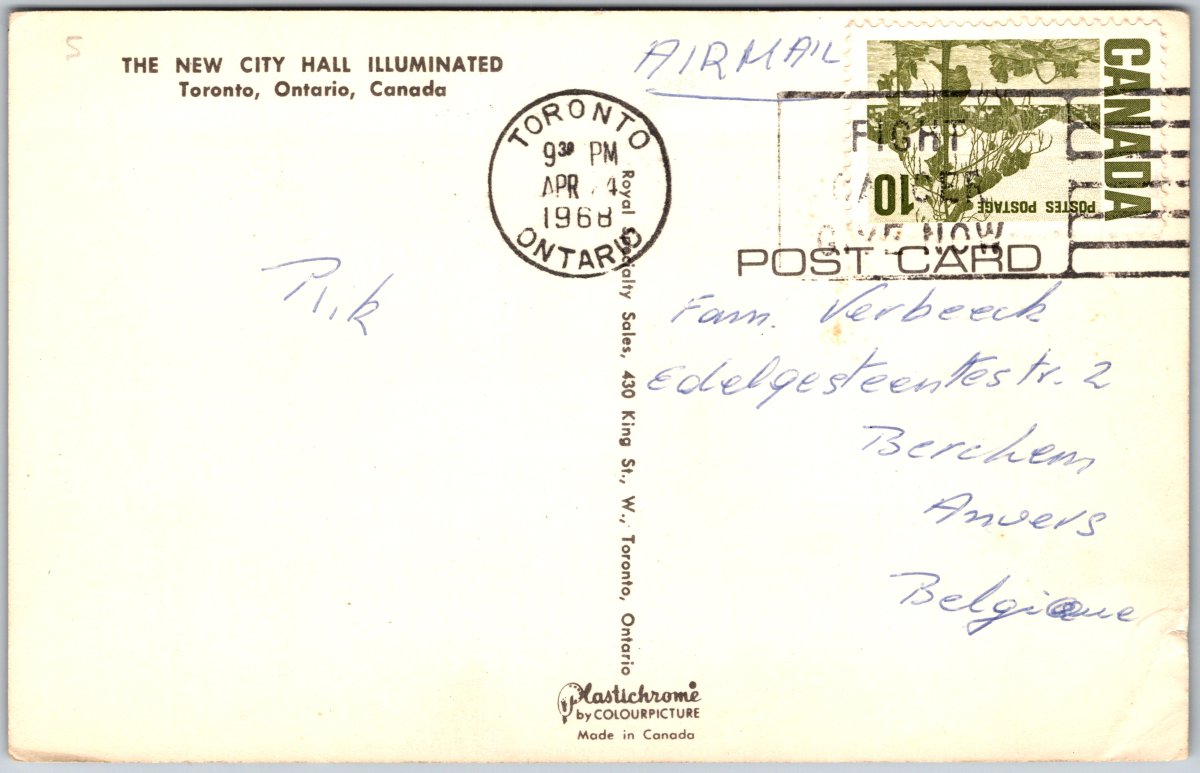 5
THE NEW CITY HALL ILLUMINATED
Toronto, Ontario, Canada
AIRMAIL
TORONTO
9 30 PM
APR 4
1968
ONTARIO
FIGHT
CANCER
GIVE NOW
CANADA
10
POSTES POSTAGE
POST CARD
Rik
Fam. Verbeeck
Edelgesteentestr. 2
Berchem
Anvers
Belgique
Royal Specialty Sales, 430 King St., W., Toronto, Ontario
Plastichrome
by COLOURPICTURE
Made in Canada